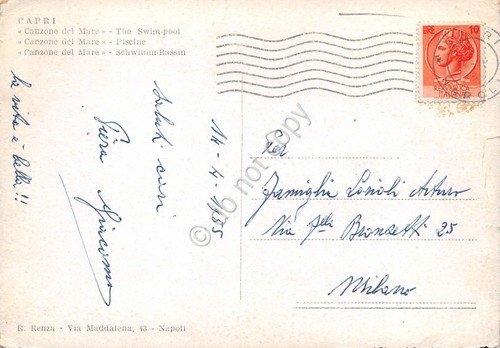 CAPRI
« Canzone del Mare » - The Swim-pool
« Canzone del Mare » - Piscine
« Canzone del Mare » - Schwimm-Bassin
la vita è bella!!
Piera Giacomo
Saluti cari
14-4-1955
do not copy
10
Per
Famiglia Arturo
Via F.lli Bronzetti 25
Milano
R. Renza - Via Maddalena, 43 - Napoli